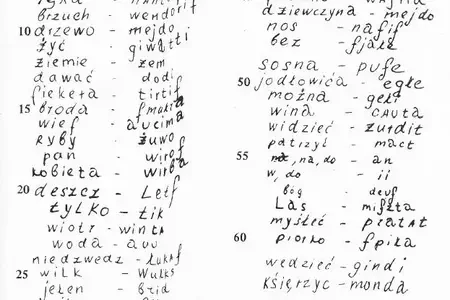 brzuch - wendorif
10 drzewo - mejdo
żyć - giwatti
ziemie - zem
dawać - dodi
siekera - tirtif
15 broda - smakra
wief - aucima
Ryby - żuwo
pan - wirof
kobieta - wirba
20 deszcz - Letf
tylko - tik
wiotr - winta
woda - auu
niedzwedz - tukaf
25 wilk - wulks
jelen - brid
dziewczyna - mejdo
nos - nafif
bez - fjałe
sosna - pufe
50 jodłowića - egłe
można - geti
wina - cauta
widzieć - zurdit
patrzyć - mact
55 na, do - an
w, do - ii
bóg - deuf
Las - mifta
myśleć - pratat
60 piórko - fpika
wedzieć - gindi
Księrzyc - monda